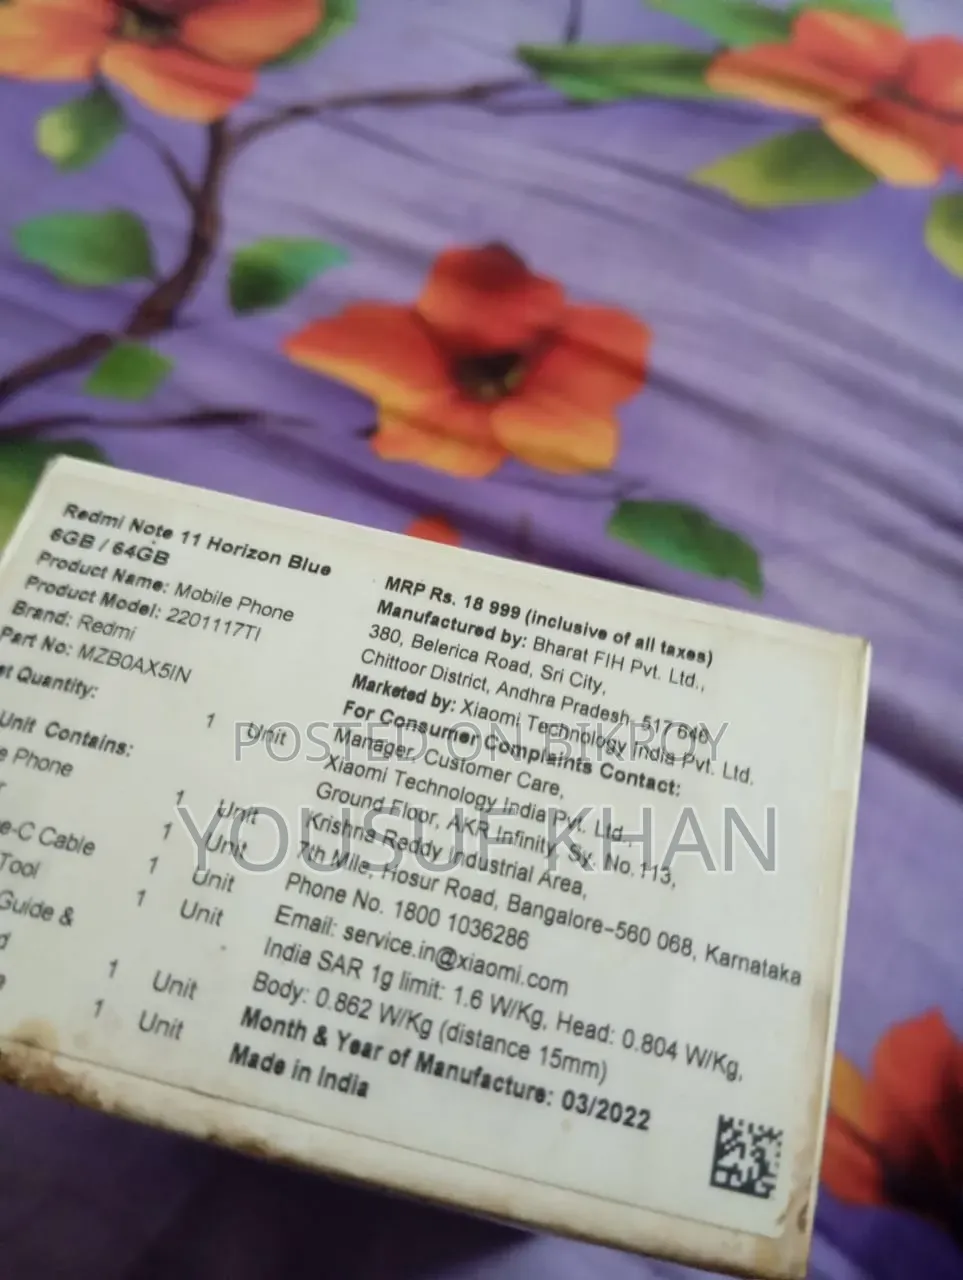 Redmi Note 11 Horizon Blue
6GB / 64GB
Product Name: Mobile Phone
Product Model: 2201117TI
Brand: Redmi
Part No: MZB0AX5IN
Quantity:
1 Unit
Unit Contains:
Phone
1 Unit
1 Unit
Cable
1 Unit
Tool
1 Unit
Guide &
1 Unit
1 Unit
MRP Rs. 18 999 (inclusive of all taxes)
Manufactured by: Bharat FIH Pvt. Ltd.,
380, Belerica Road, Sri City,
Chittoor District, Andhra Pradesh, 517 646
Marketed by: Xiaomi Technology India Pvt. Ltd.
For Consumer Complaints Contact:
Manager, Customer Care,
Xiaomi Technology India Pvt. Ltd.,
Ground Floor, AKR Infinity, Sy. No. 113,
Krishna Reddy Industrial Area,
7th Mile, Hosur Road, Bangalore-560 068, Karnataka
Phone No. 1800 1036286
Email: service.in@xiaomi.com
India SAR 1g limit: 1.6 W/Kg, Head: 0.804 W/Kg,
Body: 0.862 W/Kg (distance 15mm)
Month & Year of Manufacture: 03/2022
Made in India
POSTED ON BIKROY
YOUSUF KHAN